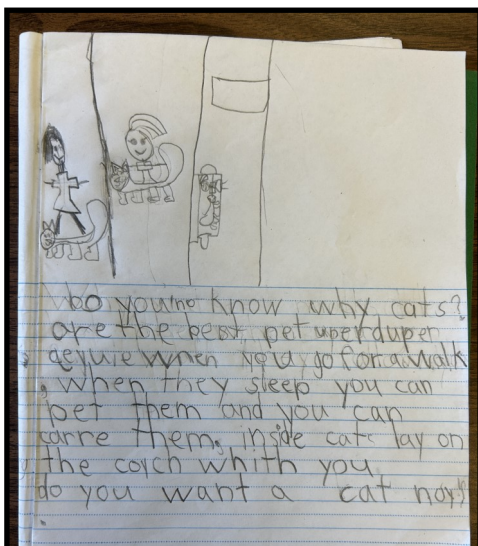 Do you know why cats?
are the best pet uperduper
when you go for a walk
when they sleep you can
pet them and you can
carre them, inside cats lay on
the coych whith you.
do you want a cat now?